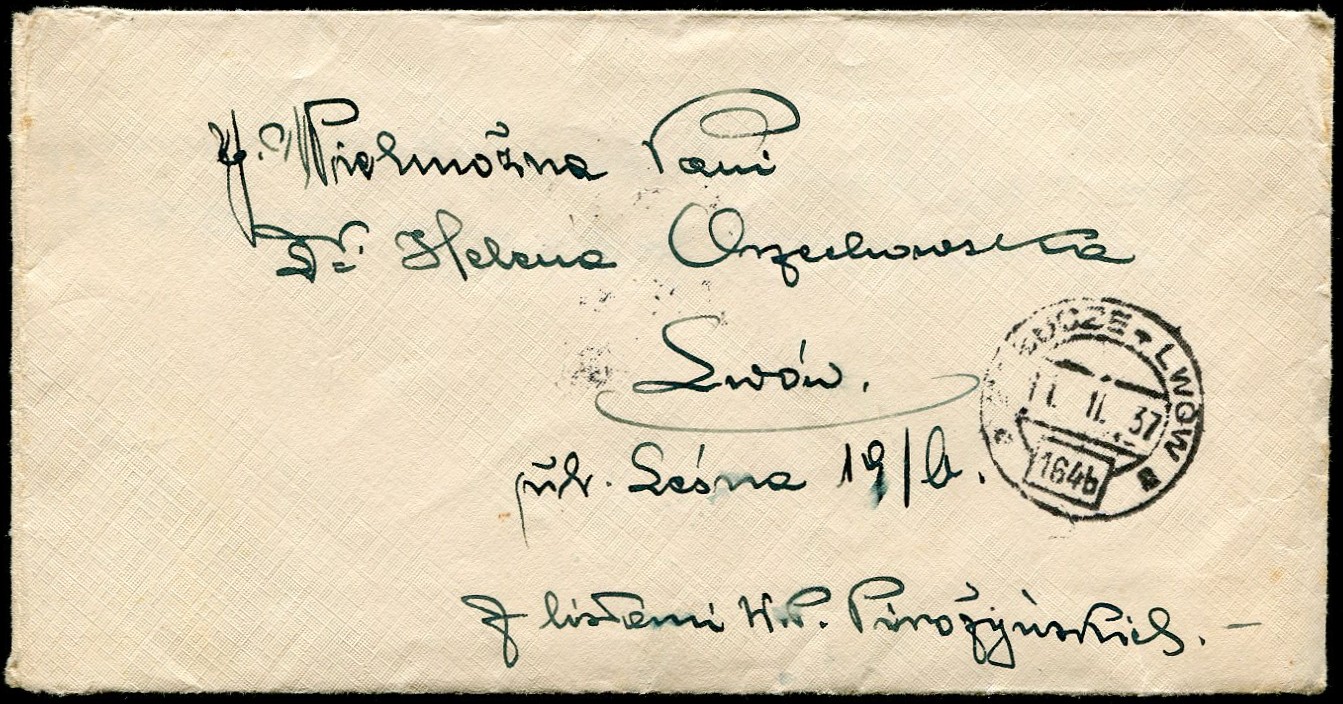 J. Wielmożna Pani
Dr. Helena Orzechowska
Lwów.
ul. Leśna 19/b.
z listami W.P. Pirożyńskich. -
LWÓW
1. II. 37
164b